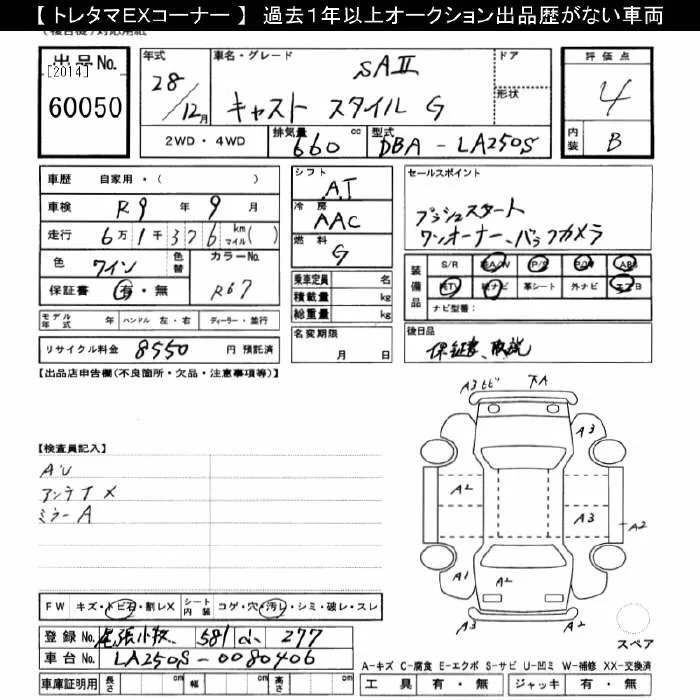 【 トレタマEXコーナー 】 過去1年以上オークション出品歴がない車両
出品No.
[2014]
60050
年式
28/12月
車名・グレード
SAⅡ
キャスト スタイル G
ドア
形状
2WD・4WD
排気量
660 cc
型式
DBA - LA250S
評価点
4
内装
B
車歴 自家用・( )
車検 R9 年 9 月
走行 6万1千376 km マイル( )
色 ワイン
色替
カラーNo.
R67
保証書 有・無
モデル年式 年 ハンドル 左・右 ディーラー・並行
リサイクル料金 8550 円 預託済
シフト
AT
冷房
AAC
燃料
G
乗車定員 名
積載量 kg
総重量 kg
名変期限
月 日
セールスポイント
プッシュスタート
ワンオーナー、バックカメラ
装備品
S/R SA/W P/S P/W ABS
純TV 純ナビ 革シート 外ナビ エアB
ナビ型番:
後日品
保証書、取説
【出品店申告欄(不良箇所・欠品・注意事項等)】
【検査員記入】
AU
アンテナ X
ミラー A
A3 ヒビ
下A
A3
A3
A2
A3
A2
A1
A2
FW キズ・トビ石・割レX
シート内装
コゲ・穴・汚レ・シミ・破レ・スレ
登録No. 尾張小牧 581 い 277
車台No. LA250S-0080406
車庫証明用 長さ cm 幅 cm 高さ cm
スペア
A-キズ C-腐食 E-エクボ S-サビ U-凹ミ W-補修 XX-交換済
工具 有・無 ジャッキ 有・無